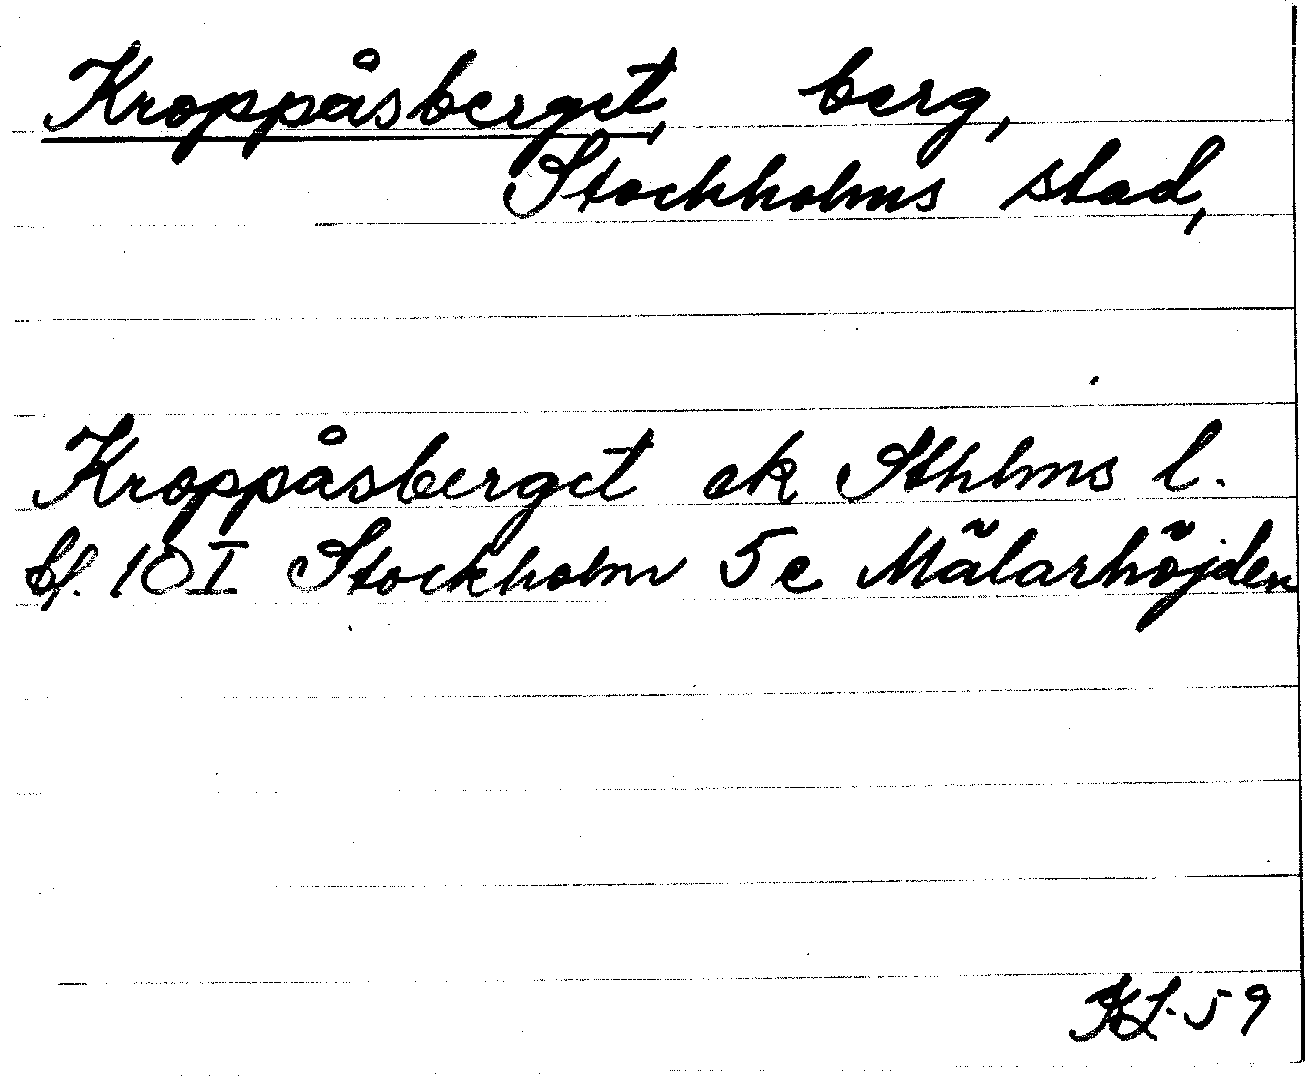 Kroppåsberget, berg,
Stockholms stad,
Kroppåsberget ek Sthlms l.
bl. 10 I Stockholm 5c Mälarhöjden
KL-59